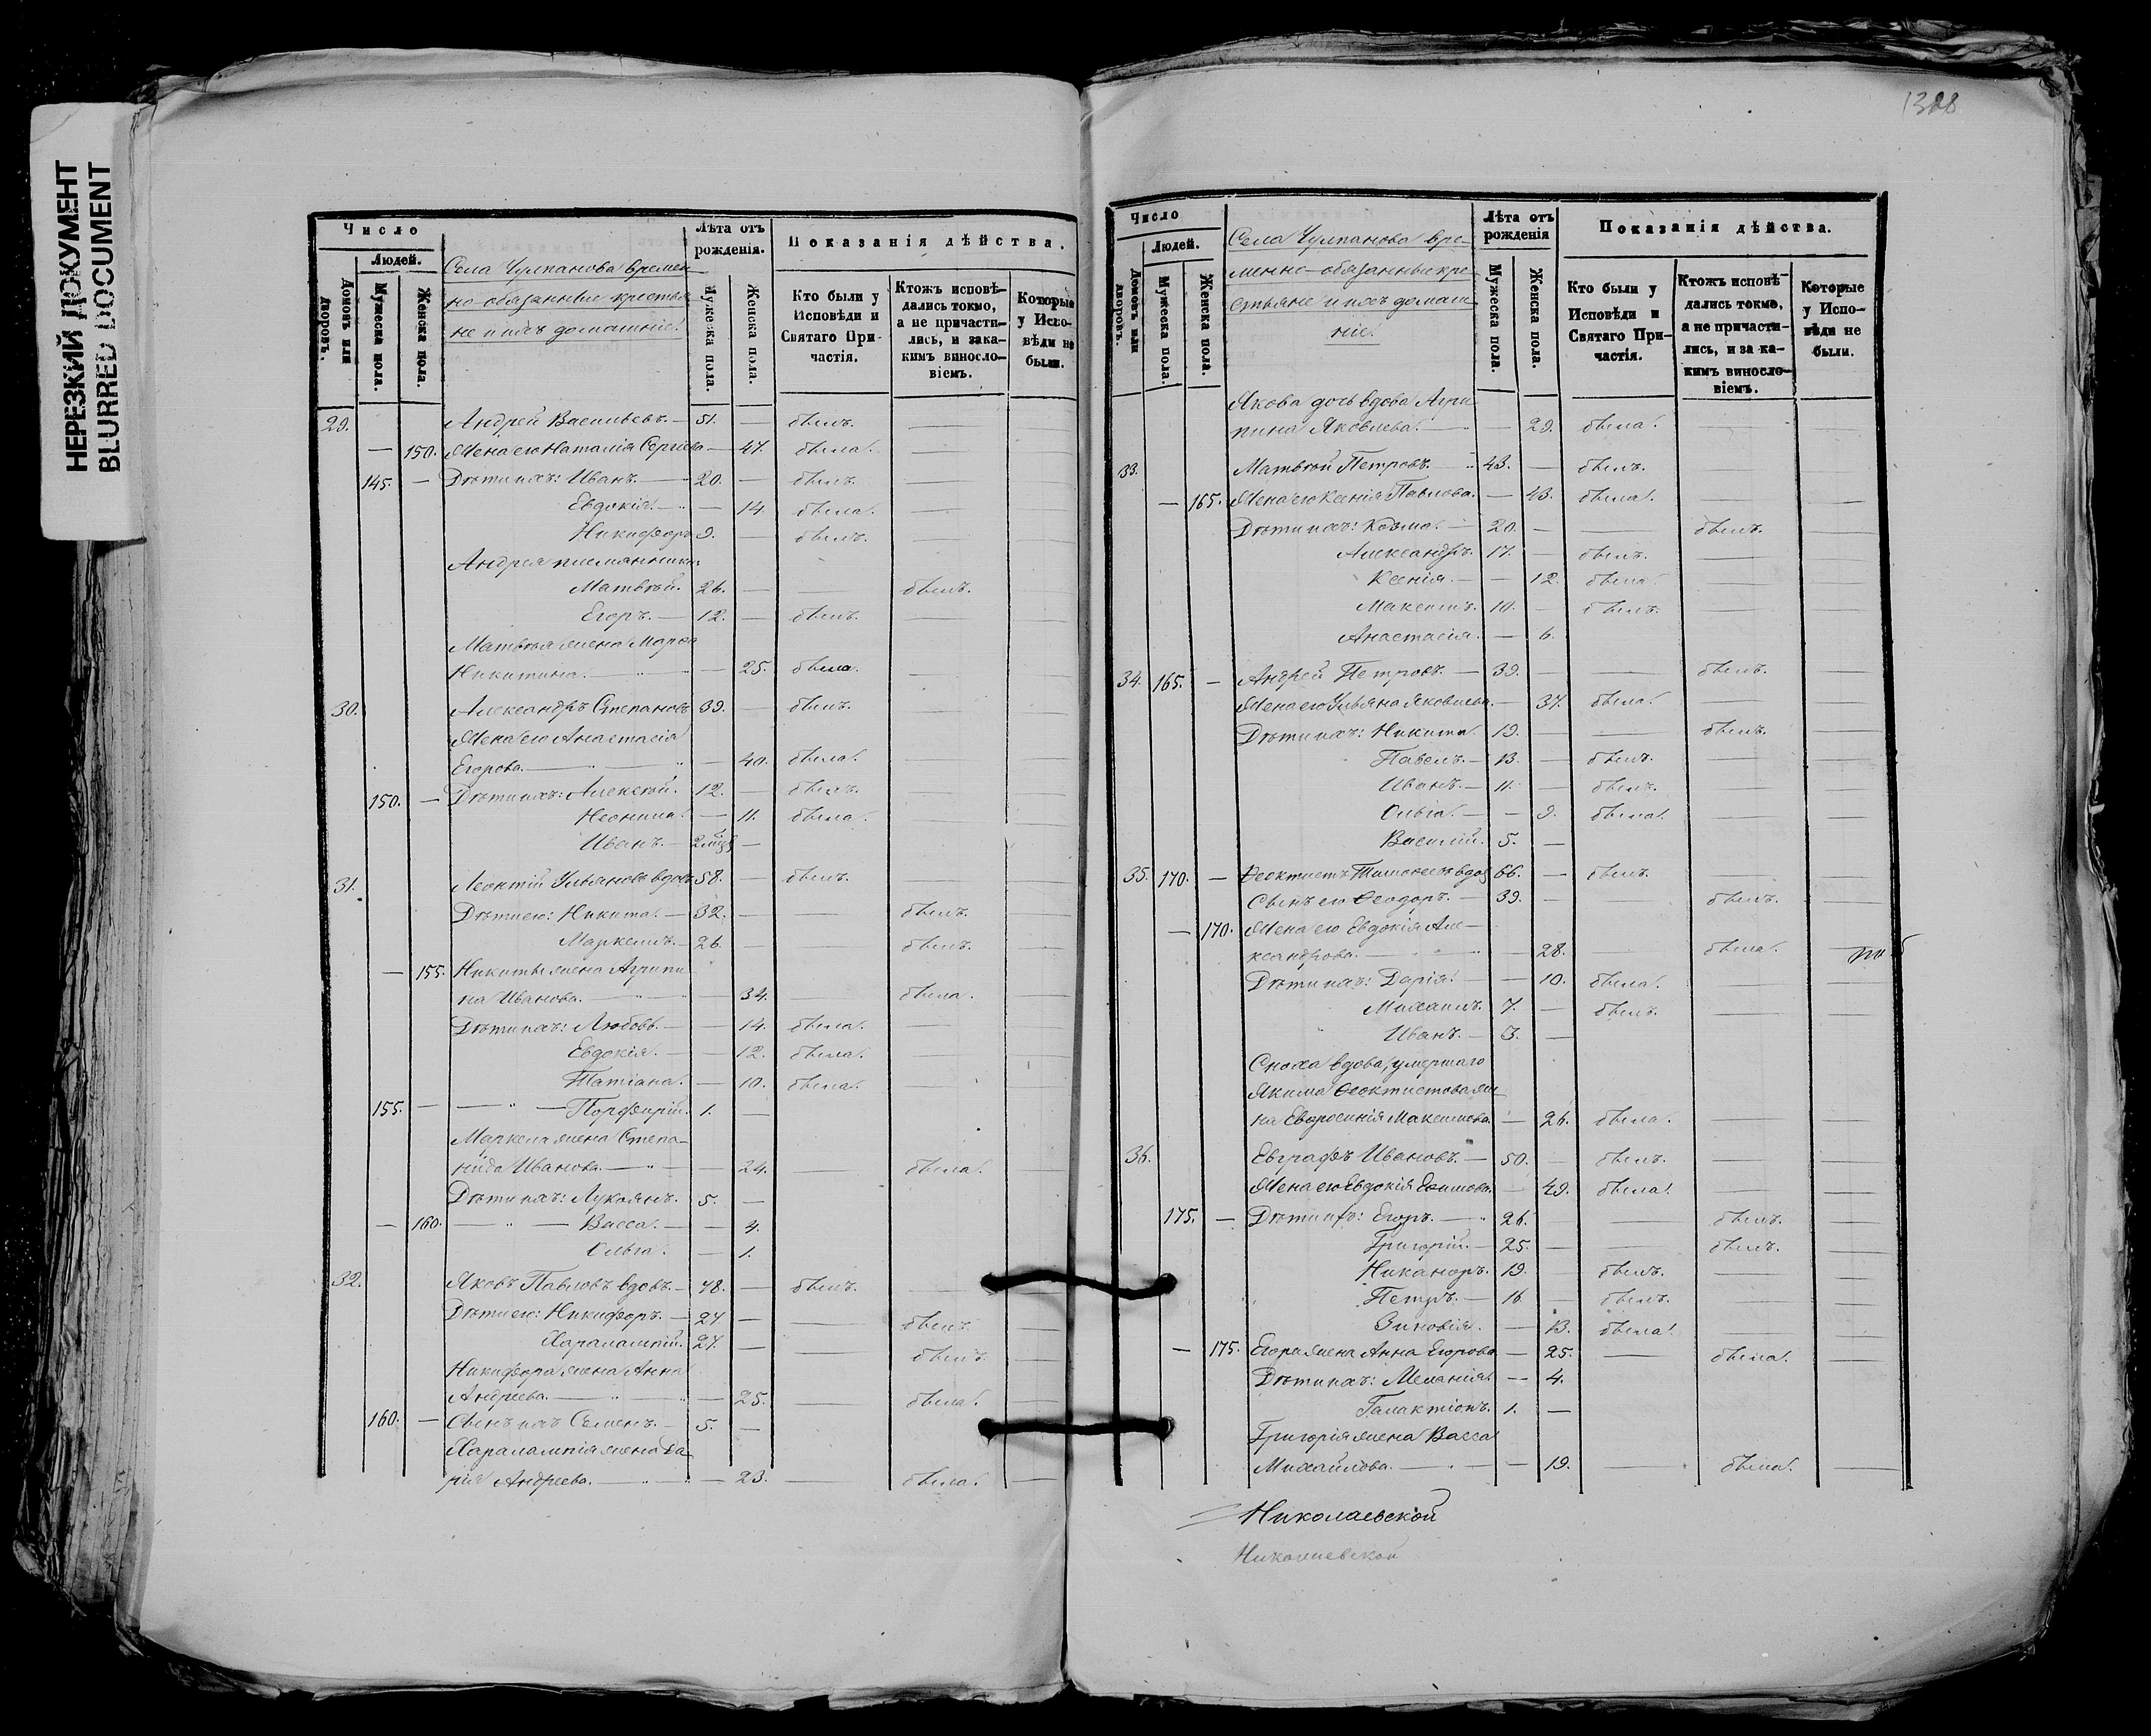 НЕРЕЗКИЙ ДОКУМЕНТ
BLURRED DOCUMENT
Число
Людей.
Домовъ или дворовъ.
Мужеска пола.
Женска пола.
Села Чулпанова времен
но-обязанные крестья
не и ихъ домашніе.
Лѣта отъ
рожденія.
Мужеска пола.
Женска пола.
Показанія дѣйства.
Кто были у
Исповѣди и
Святаго При-
частія.
Ктожъ исповѣ-
дались токмо,
а не причасти-
лись, и зака-
кимъ винослo-
віемъ.
Которые
у Испо-
вѣди не
были.
29. Андрей Васильевъ. — 51. — былъ. —
— 150. Жена его Наталія Сергѣева — 47. была. —
145. — Дѣти ихъ: Иванъ. — 20. — былъ. —
Евдокія. — — 14. была. —
Никифоръ 9. — былъ. —
Андрея племянники:
Матвѣй. 26. — — былъ.
Егоръ. — 12. — былъ. —
Матвѣя жена Марѳа
Никитина. — — 25. была. —
30. Александръ Степановъ 39. — былъ. —
Жена его Анастасія
Егорова. — — 40. была. —
150. — Дѣти ихъ: Алексѣй. 12. — былъ. —
Неонила. — 11. была. —
Иванъ. — —
31. Леонтій Ульяновъ вдовъ 58. — былъ. —
Дѣти его: Никита. — 32. — — былъ. —
Маркелъ. — 26. — — былъ. —
— 155. Никиты жена Агрипи
на Иванова. — — 34. была. —
Дѣти ихъ: Любовь. — — 14. была. —
Евдокія. — — 12. была. —
Татіана. — 10. была. —
155. — — „ — Порфирій. 1. —
Маркела жена Степа-
нида Иванова. — — 24. — была. —
Дѣти ихъ: Лукоянъ. 5. —
— 160. — „ — Васса. — — 4.
Ольга. — 1.
32. Яковъ Павловъ вдовъ. — 48. — былъ. —
Дѣти его: Никифоръ. — 27 — — былъ. —
Харалампій. 21. — — былъ. —
Никифора жена Анна
Андреева. — — 25. — была. —
160. — Сынъ ихъ Семенъ. — 5. —
Харалампія жена Да
рія Андреева. — — 23. — была. —
Число
Людей.
Домовъ или дворовъ.
Мужеска пола.
Женска пола.
Села Чулпанова вре-
менно-обязанные кре
стьяне и ихъ домаш
ніе.
Лѣта отъ
рожденія
Мужеска пола.
Женска пола.
Показанія дѣйства.
Кто были у
Исповѣди и
Святаго При-
частія.
Ктожъ исповѣ-
дались токмо,
а не причасти-
лись, и за ка-
кимъ винослo-
віемъ.
Которые
у Испо-
вѣди не
были.
Якова дочь вдова Агри
пина Яковлева. — — 29. была. —
33. Матвѣй Петровъ. — 43. — былъ.
— 165. Жена его Ксенія Павлова. — 43. была. — —
Дѣти ихъ: Козма. — 20. — — былъ. —
Александръ. 17. — былъ. —
Ксенія. — — 12. была. —
Максимъ. 10. — былъ. —
Анастасія. — 6.
34. 165. — Андрей Петровъ. — 39. — — былъ. —
Жена его Ульяна Яковлева. — 37. была. — —
Дѣти ихъ: Никита. 19. — — былъ. —
Павелъ. — 13. — былъ. — —
Иванъ. — 11. — былъ. — —
Ольга. — — 9. была. — —
Василій. 5. —
35. 170. — Ѳеоктистъ вдов 66. — былъ. —
Сынъ его Ѳеодоръ. — 39. — былъ. —
— 170. Жена его Евдокія Але-
ксандрова. — — 28. — была. —
Дѣти ихъ: Дарія. — — 10. была. — —
Михаилъ. 7. — былъ. — —
Иванъ. — 3. —
Сноха вдова, умершаго
Якима Ѳеоктистова же
на Евфросинія Максимова. — 26. была. — —
36. Евграфъ Ивановъ. — 50. — былъ. — —
Жена его Евдокія Екимова. — 49. была. — —
175. — Дѣти ихъ: Егоръ. — 26. — былъ. —
Григорій. — 25. — — былъ. —
Никаноръ. 19. — былъ. — —
Петръ. — 16. — былъ. — —
Зиновія. — 13. была. — —
— 175. Егора жена Анна Егорова — 25. — была. —
Дѣти ихъ: Меланія. — 4.
Галактіонъ. 1. —
Григорія жена Васса
Михайлова. — — 19. — была. —
Николаевской
Николаевской